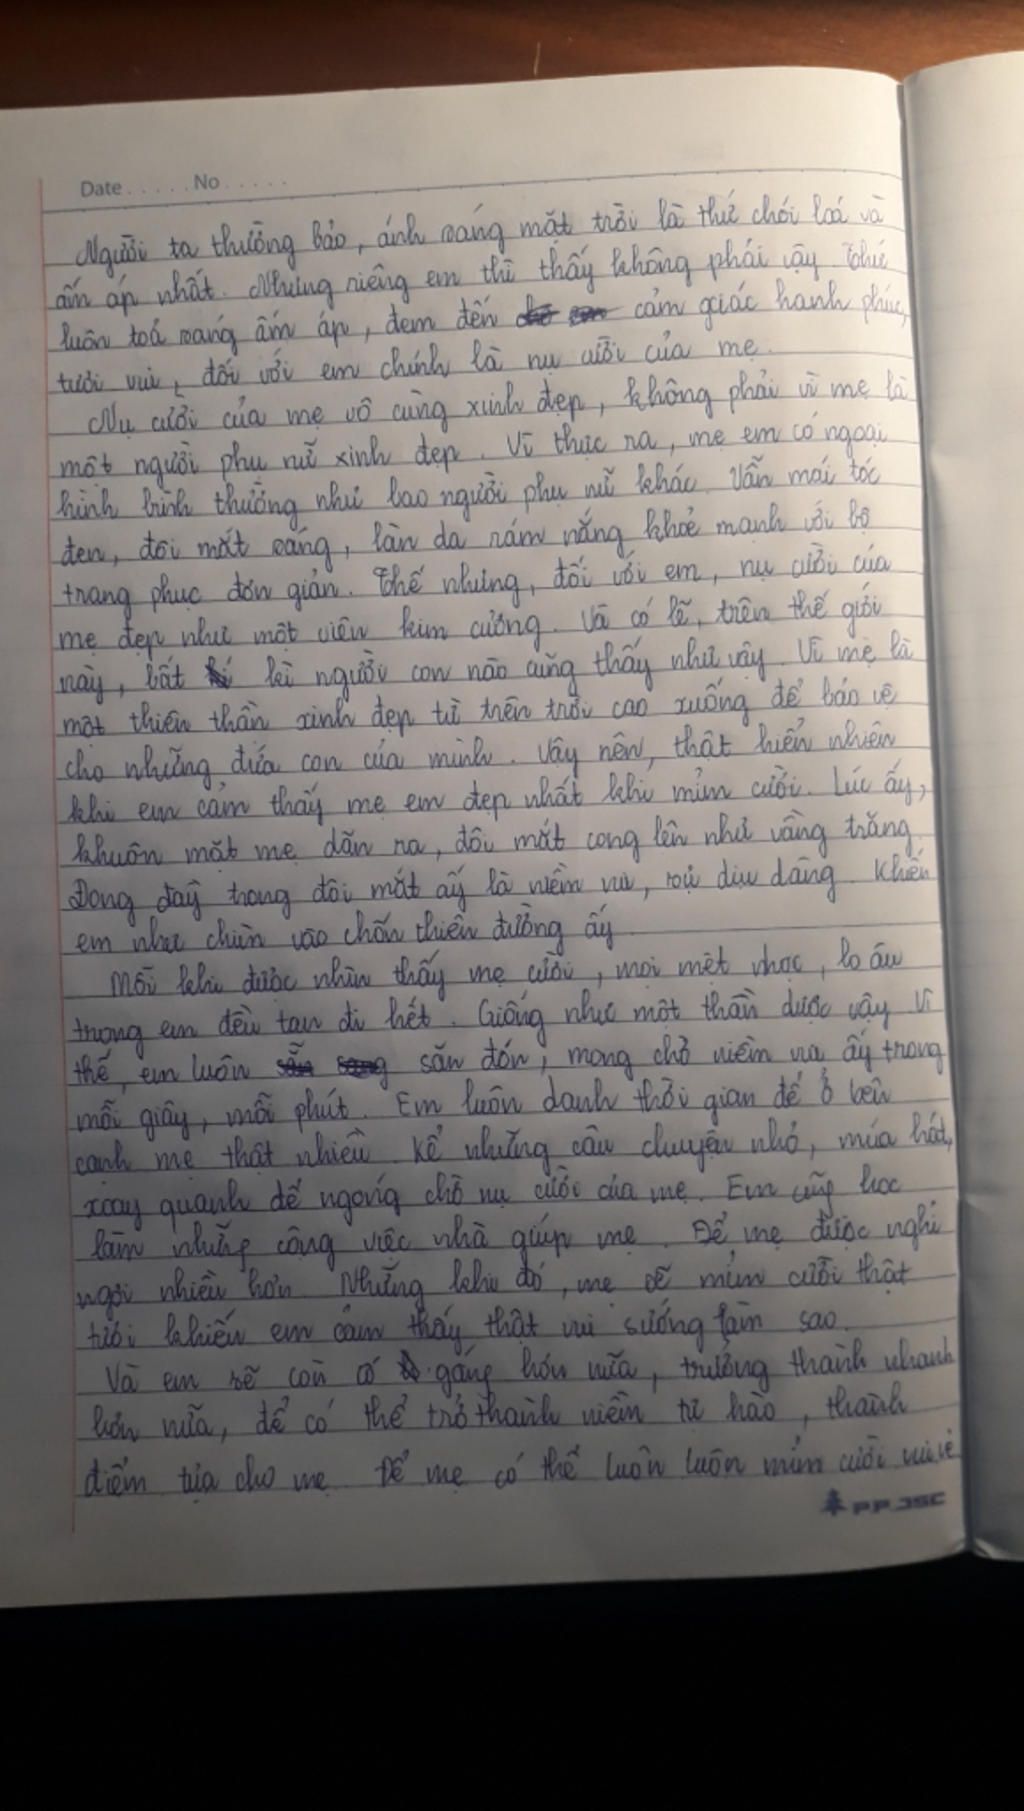 Date ..... No .....
Người ta thường bảo, ánh sáng mặt trời là thứ chói loá và
ấm áp nhất. Nhưng riêng em thì thấy không phải vậy. Thứ
luôn toả sáng ấm áp, đem đến cảm giác hạnh phúc,
tươi vui, đối với em chính là nụ cười của mẹ.
Nụ cười của mẹ vô cùng xinh đẹp, không phải vì mẹ là
một người phụ nữ xinh đẹp. Vì thực ra, mẹ em có ngoại
hình bình thường như bao người phụ nữ khác. Vẫn mái tóc
đen, đôi mắt sáng, làn da rám nắng khoẻ mạnh với bộ
trang phục đơn giản. Thế nhưng, đối với em, nụ cười của
mẹ đẹp như một viên kim cương. Và có lẽ, trên thế giới
này, bất kì người con nào cũng thấy như vậy. Vì mẹ là
một thiên thần xinh đẹp từ trên trời cao xuống để bảo vệ
cho những đứa con của mình. Vậy nên, thật hiển nhiên
khi em cảm thấy mẹ em đẹp nhất khi mỉm cười. Lúc ấy,
khuôn mặt mẹ dãn ra, đôi mắt cong lên như vầng trăng.
Đong đầy trong đôi mắt ấy là niềm vui, sự dịu dàng. Khiến
em như chìm vào chốn thiên đường ấy.
Mỗi khi được nhìn thấy mẹ cười, mọi mệt nhọc, lo âu
trong em đều tan đi hết. Giống như một thần dược vậy. Vì
thế, em luôn săn đón, mong chờ niềm vui ấy trong
mỗi giây, mỗi phút. Em luôn dành thời gian để ở bên
cạnh mẹ thật nhiều. Kể những câu chuyện nhỏ, múa hát,
xoay quanh để ngóng chờ nụ cười của mẹ. Em cũng học
làm những công việc nhà giúp mẹ. Để mẹ được nghỉ
ngơi nhiều hơn. Những khi đó, mẹ sẽ mỉm cười thật
tươi khiến em cảm thấy thật vui sướng làm sao.
Và em sẽ còn cố gắng hơn nữa, trưởng thành nhanh
hơn nữa, để có thể trở thành niềm tự hào, thành
điểm tựa cho mẹ. Để mẹ có thể luôn luôn mỉm cười vui vẻ
PP.JSC